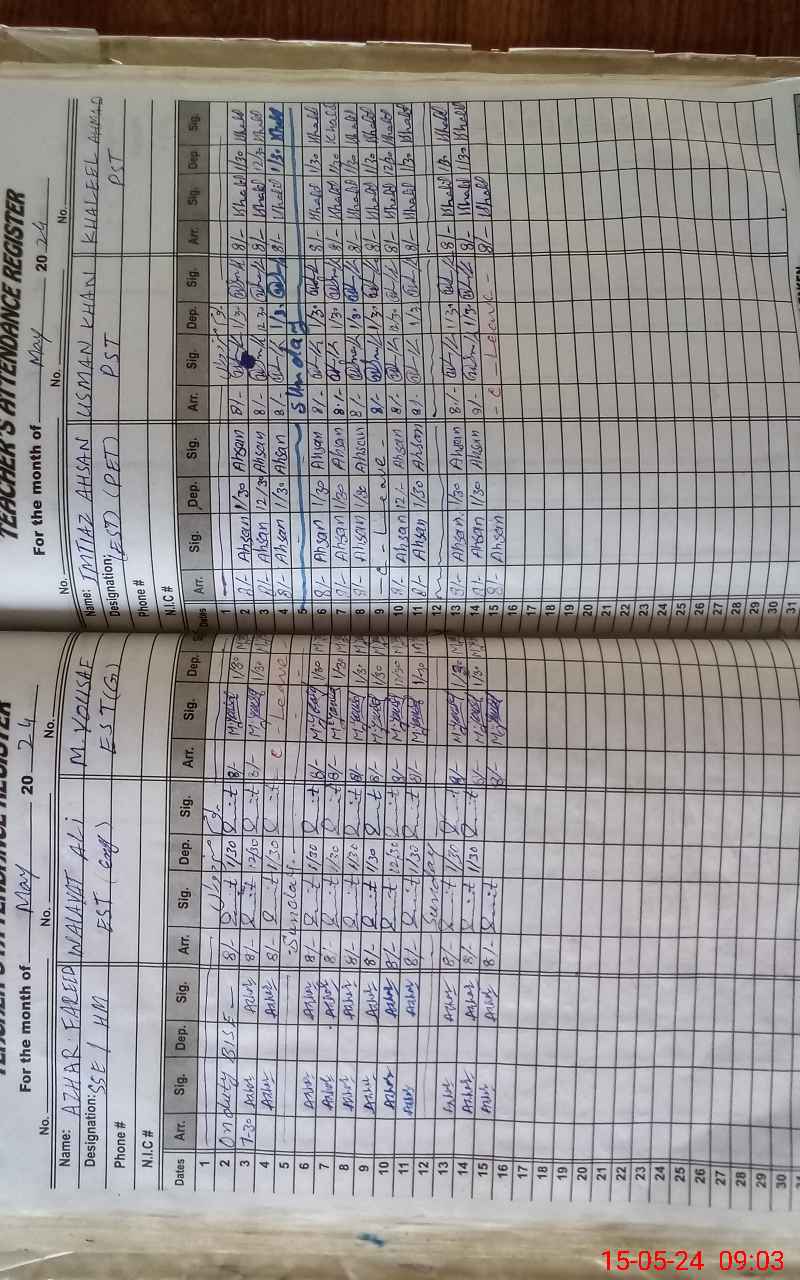 TEACHER'S ATTENDANCE REGISTER
For the month of May 20 24
No. No. No.
Name: AZHAR FAREED WALAYAT ALI M. YOUSAF
Designation: SSE / HM EST (eng) EST (G)
Phone #
N.I.C #
Dates Arr. Sig. Dep. Sig. Arr. Sig. Dep. Sig. Arr. Sig. Dep.
1
2 On duty BISE 8/- 1/30 8/- M.Yousaf 1/30
3 7-30 Azhar Azhar 8/- 12/30 8/- M.Yousaf 1/30
4 Azhar Azhar 8/- 1/30 C - Leave
5 Sunday
6 Azhar Azhar 8/- 1/30 8/- M.Yousaf 1/30
7 Azhar Azhar 8/- 1/30 8/- M.Yousaf 1/30
8 Azhar Azhar 8/- 1/30 8/- M.Yousaf 1/30
9 Azhar Azhar 8/- 1/30 8/- M.Yousaf 1/30
10 Azhar Azhar 8/- 12/30 8/- M.Yousaf 12/30
11 Azhar Azhar 8/- 1/30 8/- M.Yousaf 1/30
12 Sunday
13 Azhar Azhar 8/- 1/30 8/- M.Yousaf 1/30
14 Azhar Azhar 8/- 1/30 8/- M.Yousaf 1/30
15 Azhar Azhar 8/- 8/- M.Yousaf
16
17
18
19
20
21
22
23
24
25
26
27
28
29
30
TEACHER'S ATTENDANCE REGISTER
For the month of May 20 24
No. No. No.
Name: IMTIAZ AHSAN USMAN KHAN KHALEEL AHMAD
Designation: (EST) (PET) PST PST
Phone #
N.I.C #
Dates Arr. Sig. Dep. Sig. Arr. Sig. Dep. Sig. Arr. Sig. Dep. Sig.
1
2 8/- Ahsan 1/30 Ahsan 8/- 1/30 8/- Khalil 1/30 Khalil
3 8/- Ahsan 12/30 Ahsan 8/- 12-30 8/- Khalil 12/30 Khalil
4 8/- Ahsan 1/30 Ahsan 8/- 1/30 8/- Khalil 1/30 Khalil
5 Sunday
6 8/- Ahsan 1/30 Ahsan 8/- 1/30 8/- Khalil 1/30 Khalil
7 8/- Ahsan 1/30 Ahsan 8/- 1/30 8/- Khalil 1/30 Khalil
8 8/- Ahsan 1/30 Ahsan 8/- 1/30 8/- Khalil 1/30 Khalil
9 - C - Leave - 8/- 1/30 8/- Khalil 1/30 Khalil
10 8/- Ahsan 12/- Ahsan 8/- 12/30 8/- Khalil 12/30 Khalil
11 8/- Ahsan 1/30 Ahsan 8/- 1/30 8/- Khalil 1/30 Khalil
12
13 8/- Ahsan 1/30 Ahsan 8/- 1/30 8/- Khalil 1/30 Khalil
14 8/- Ahsan 1/30 Ahsan 8/- 1/30 8/- Khalil 1/30 Khalil
15 8/- Ahsan - C - Leave - 8/- Khalil
16
17
18
19
20
21
22
23
24
25
26
27
28
29
30
31
15-05-24 09:03